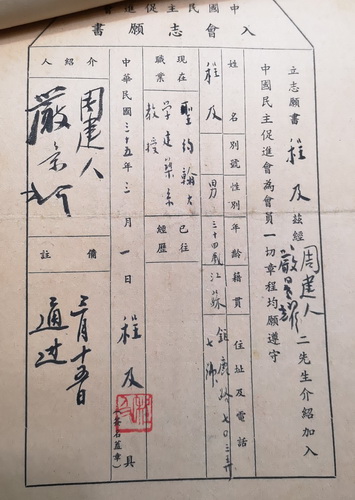 中國民主促進會
入會志願書
立志願書 程及 茲經 周建人 嚴景耀 二先生介紹加入
中國民主促進會為會員一切章程均願遵守
姓名 別號 性別 年齡 籍貫 住址及電話
程及 男 三十四歲 江蘇 七號
現在職業 聖約翰大學建築系教授
已往經歷
中華民國三十五年三月一日 程及 具
(簽名蓋章)
介紹人 周建人
嚴景耀
備註 三月十五日
通过